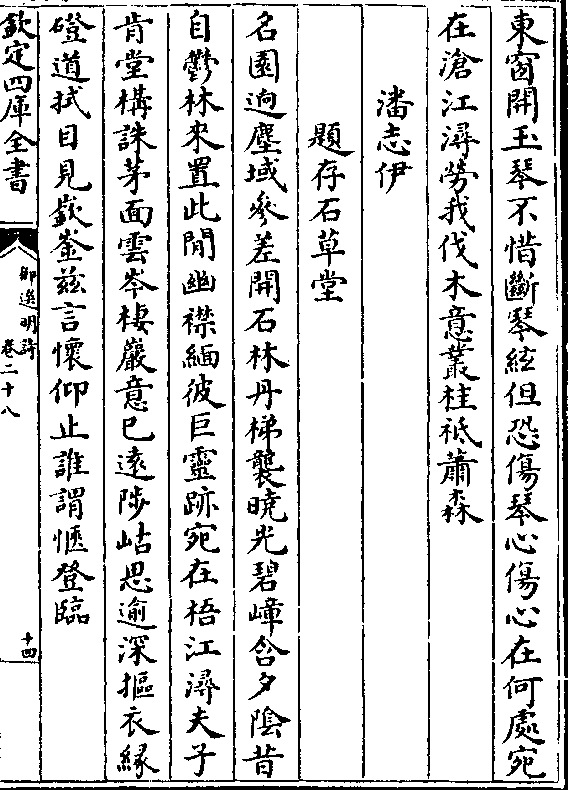 東窗開玉琴不惜斷琴絃但恐傷琴心傷心在何處宛
在滄江潯勞我伐木意叢桂祇蕭森
潘志伊
題存石草堂
名園逈塵域參差開石林丹梯襲曉光碧嶂含夕陰昔
自鬱林來置此閒幽襟緬彼巨靈跡宛在梧江潯夫子
肯堂構誅茅面雲岑棲巖意已遠陟岵思逾深摳衣緣
磴道拭目見嶔崟茲言懷仰止誰謂愜登臨
欽定四庫全書
御選明詩
卷二十八
十四